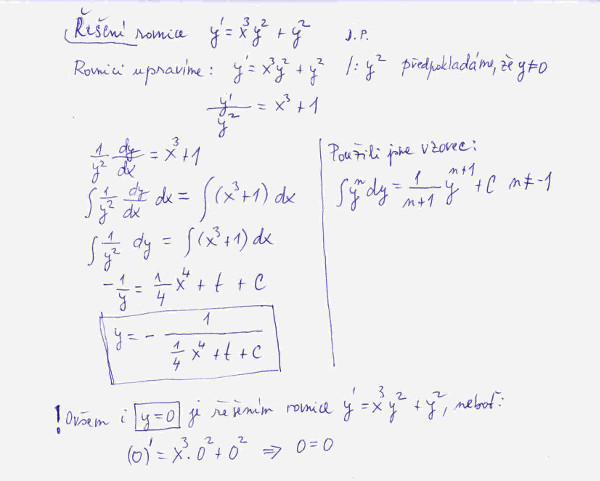 Řešení rovnice y' = x³y² + y² J.P.
Rovnici upravíme: y' = x³y² + y² /: y² předpokládáme, že y ≠ 0
y'/y² = x³ + 1
1/y² dy/dx = x³ + 1
∫ 1/y² dy/dx dx = ∫ (x³ + 1) dx
∫ 1/y² dy = ∫ (x³ + 1) dx
- 1/y = 1/4 x⁴ + t + C
y = - 1/(1/4 x⁴ + t + C)
Použili jsme vzorec:
∫ yⁿ dy = 1/(n+1) yⁿ⁺¹ + C n ≠ -1
! Ovšem i y = 0 je řešením rovnice y' = x³y² + y², neboť:
(0)' = x³ · 0² + 0² ⇒ 0 = 0